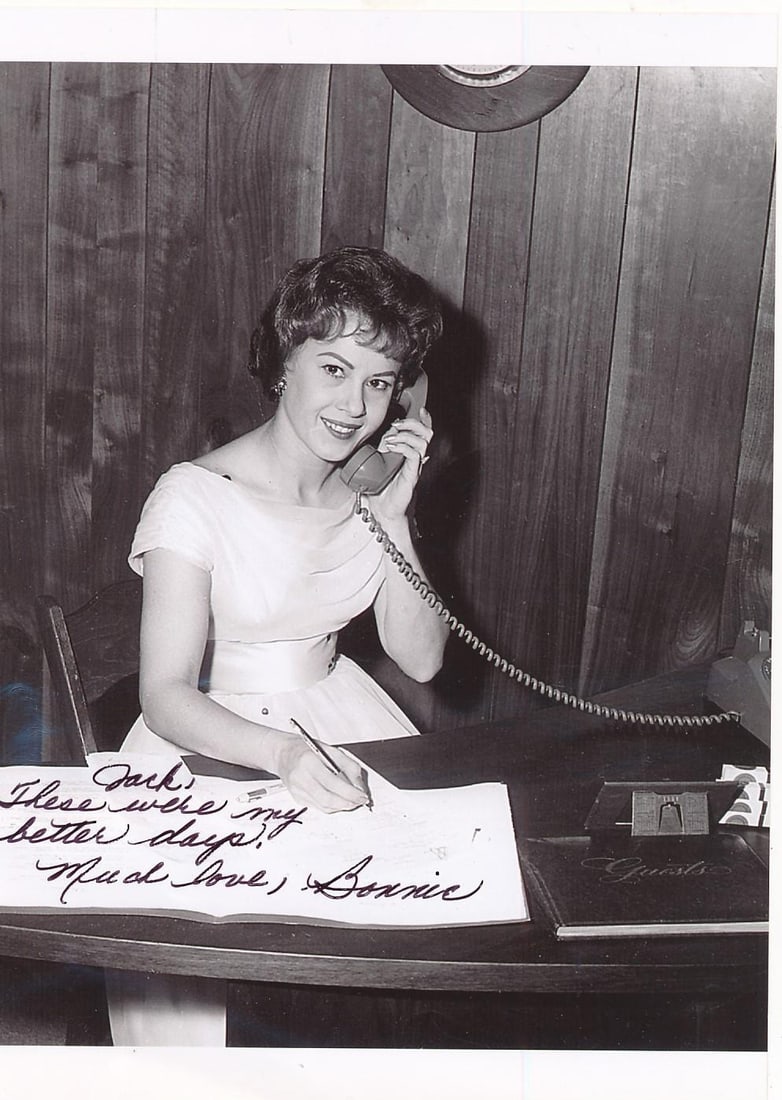 Jack,
These were my
better days.
Much love, Bonnie
Guests